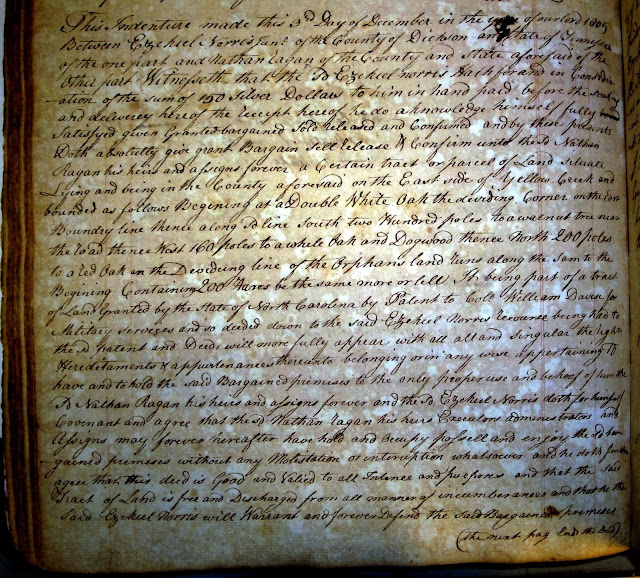 This Indenture made this 3rd Day of December in the year of our lord 1805
Between Ezekiel Norris Junr of the County of Dickson and State of Tennessee
of the one part and Nathan Ragan of the County and State aforesaid of the
Other part Witnesseth that the Sd Ezekiel Norris Hath for and in Consider-
-ation of the sum of 150 Silver Dollars to him in hand paid before the
and delivery hereof the receipt hereof he do acknowledge hemself fully
Satisfyed given Granted bargained Sold released and Confirmed and by these presents
Doth absolutly give grant Bargain Sell release & Confirm unto the Sd Nathan
Ragan his heirs and assigns forever a Certain tract or parcel of Land Situate
Lying and being in the County aforesaid on the East side of Yellow Creek and
bounded as follows Begining at a Double White Oak the deviding Corner on the
Boundry line thence along Sd line South two Hundred poles to a walnut tree near
the road thence West 160 poles to a white Oak and Dogwood thence North 200 poles
to a red Oak on the Deviding line of the Orphans land runs along the Sam to the
Begining Containing 200 Acres be the same more or less It being part of a tract
of Land Granted by the State of North Carolina by Patent to Colo William Davis for
Military services and so deeded down to the said Ezekiel Norris recource being had to
the sd patent and Deeds will more fully appear with all all and Singular the rights
Hereditaments & appurtenances thereunto belonging or in any wise appertaining To
have and to hold the said Bargained premises to the only proper use and behoof of him the
Sd Nathan Ragan his heirs and assigns forever and the Sd Ezekiel Norris doth for himself
Covenant and agree that the sd Nathan Ragan his heirs Executors administrators and
Assigns may forever hereafter have hold and Occupy possess and enjoy the sd bar-
gained premises without any Molestation or interuption whatsoever and he doth further
agree that this deed is Good and Valied to all Intence and purposes and that the said
Tract of Land is free and Discharged from all manner of incumberances and that he the
Said Ezekiel Norris will Warrant and forever Defend the Said Bargained premises
(the next pag Ends this Deed)